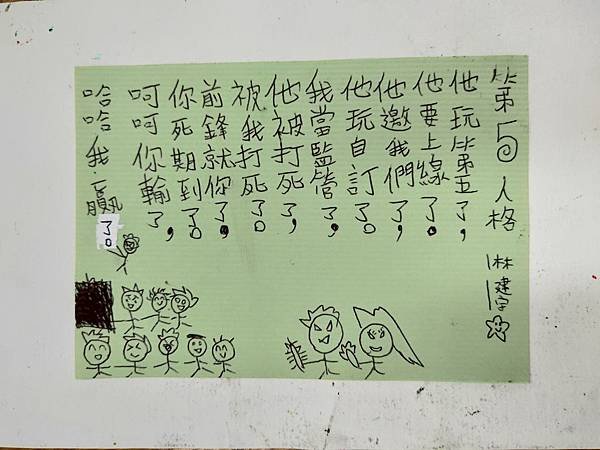 第5人格 林建宇
他玩第五了,
他要上線了。
他邀我們了,
他玩自訂了。
我當監管了,
他被打死了,
被我打死了。
前鋒就你了,
你死期到了。
呵呵你輸了,
哈哈我贏了。